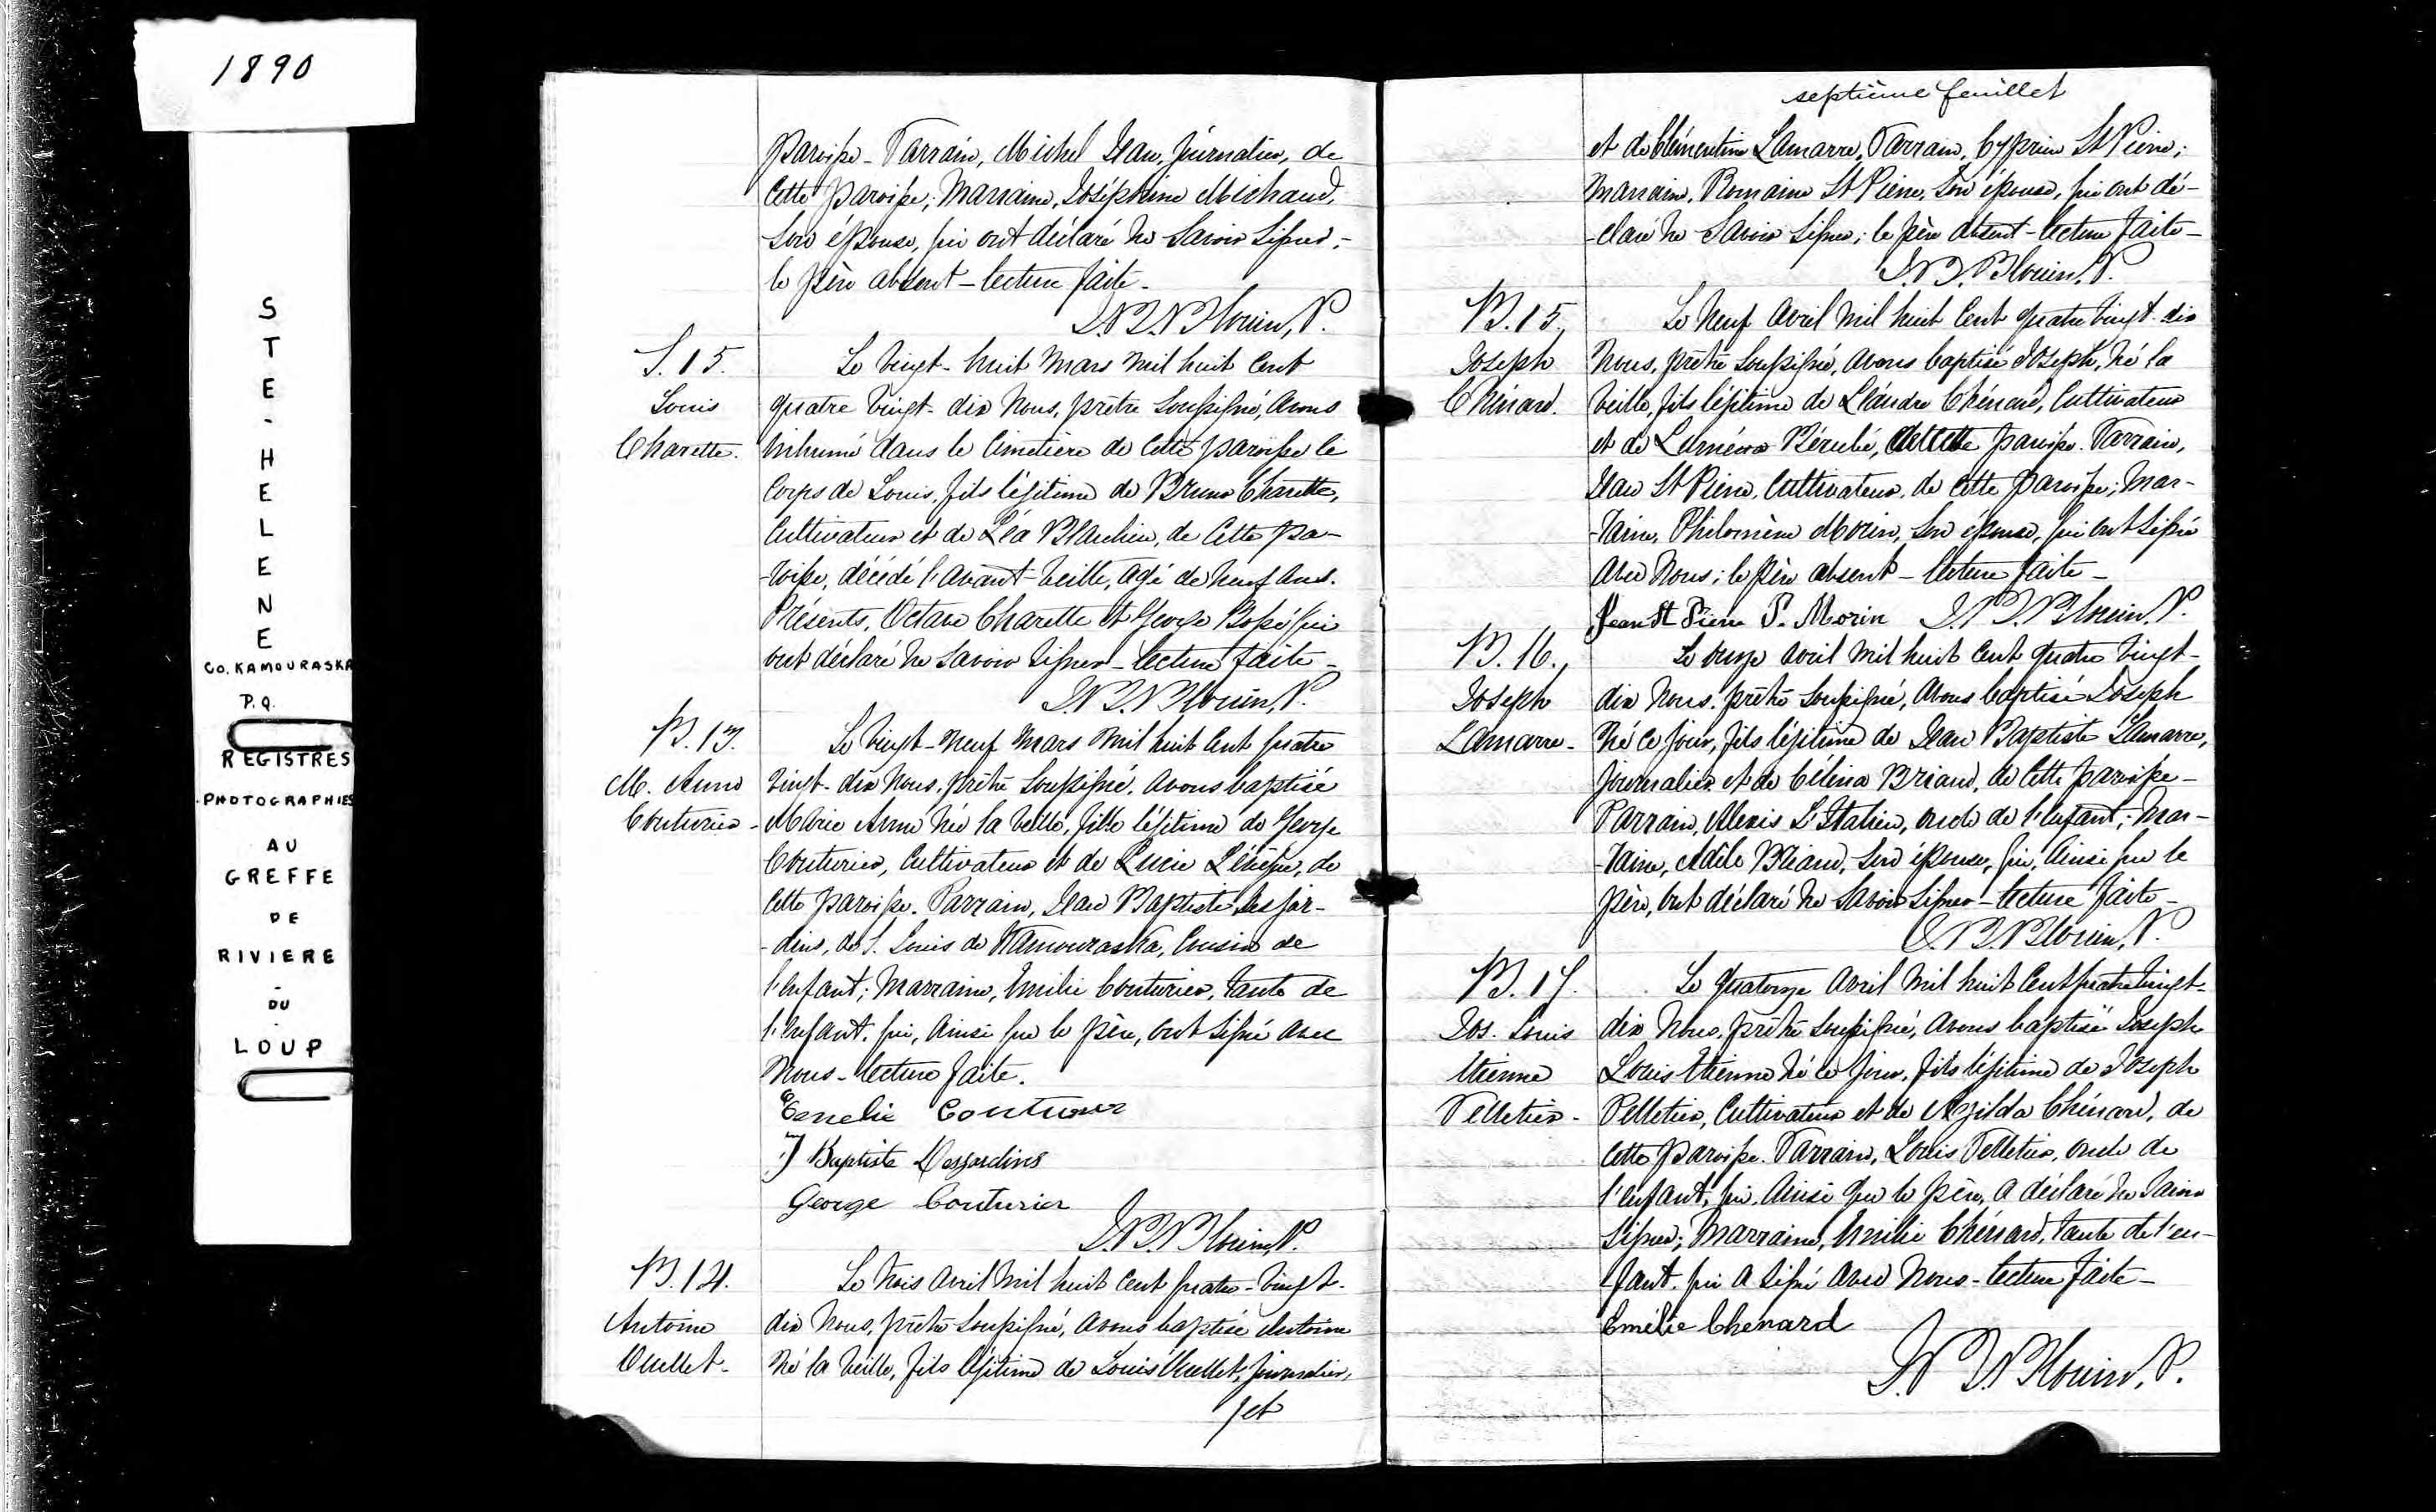 1890
STE-HELENE
CO. KAMOURASKA
P.Q.
REGISTRES
PHOTOGRAPHIES
AU
GREFFE
DE
RIVIERE
-
DU
LOUP
paroisse - Parrain, Michel Jean, journalier, de
cette paroisse; Marraine, Joséphine Michaud,
son épouse, qui ont déclaré ne savoir signer;
le père absent - lecture faite.
Blouin, P.
S. 15.
Louis
Charette.
Le vingt-huit Mars mil huit cent
quatre vingt-dix Nous, prêtre soussigné, avons
inhumé dans le cimetière de cette paroisse le
corps de Louis, fils légitime de Bruno Charette,
cultivateur et de Léa Beaulieu, de cette pa-
-roisse, décédé l'avant-veille, agé de neuf ans.
Présents, Octave Charette et George qui
ont déclaré ne savoir signer - lecture faite -
Blouin, P.
B. 13.
M. Anne
Couturier -
Le vingt-neuf Mars mil huit cent quatre
vingt-dix Nous, prêtre soussigné, avons baptisé
Marie Anne née la veille, fille légitime de George
Couturier, cultivateur et de Lucie Lévêque, de
cette paroisse. Parrain, Jean Baptiste Desjar-
-dins, de S. Louis de Kamouraska, cousin de
l'enfant; Marraine, Emilie Couturier, tante de
l'enfant, qui, ainsi que le père, ont signé avec
Nous - lecture faite.
Emelie Couturier
J Baptiste Desjardins
George Couturier
Blouin, P.
B. 14.
Antoine
Ouellet -
Le trois avril mil huit cent quatre-vingt-
dix Nous, prêtre soussigné, avons baptisé Antoine
né la veille, fils légitime de Louis Ouellet, journalier,
/et
septième feuillet
et de Clémentine Lamarre, Parrain, Cyprien St Pierre;
Marraine, Romaine St Pierre, son épouse, qui ont dé-
-claré ne savoir signer; le père absent - lecture faite -
Blouin, P.
B. 15.
Joseph
Chénard.
Le neuf avril mil huit cent quatre vingt-dix
Nous, prêtre soussigné, avons baptisé Joseph, né la
veille, fils légitime de Léandre Chénard, cultivateur
et de Luména Bérubé, de cette paroisse. Parrain,
Jean St Pierre, cultivateur, de cette paroisse; Mar-
-raine, Philomène Morin, son épouse, qui ont signé
avec Nous; le père absent - lecture faite -
Jean St Pierre P. Morin Blouin, P.
B. 16.,
Joseph
Lamarre -
Le onze avril mil huit cent quatre vingt-
dix Nous, prêtre soussigné, avons baptisé Joseph
né ce jour, fils légitime de Jean Baptiste Lamarre,
journalier et de Célina Briand, de cette paroisse -
Parrain, Alexis L'Italien, oncle de l'enfant; Mar-
-raine, Adèle Briand, son épouse, qui, ainsi que le
père, ont déclaré ne savoir signer - lecture faite -
Blouin, P.
B. 17.
Jos. Louis
Etienne
Pelletier -
Le quatorze avril mil huit cent quatre vingt-
dix Nous, prêtre soussigné, avons baptisé Joseph
Louis Etienne né ce jour, fils légitime de Joseph
Pelletier, cultivateur et de Azilda Chénard, de
cette paroisse. Parrain, Louis Pelletier, oncle de
l'enfant, qui, ainsi que le père, a déclaré ne savoir
signer; Marraine, Emilie Chénard, tante de l'en-
-fant, qui a signé avec Nous - lecture faite -
Emélie Chenard
Blouin, P.